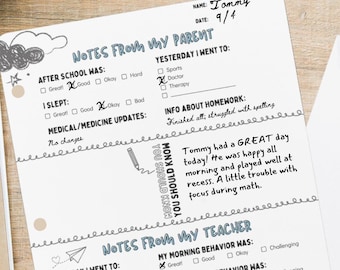 NAME: Tommy
DATE: 9/4
NOTES FROM MY PARENT
AFTER SCHOOL WAS:
Great Good Okay Hard
I SLEPT:
Great Good Okay Bad
MEDICAL/MEDICINE UPDATES:
No changes
YESTERDAY I WENT TO:
Sports
Doctor
Therapy
INFO ABOUT HOMEWORK:
Finished all; struggled with spelling
YOU SHOULD KNOW
Tommy had a GREAT day
today! He was happy all
morning and played well at
recess. A little trouble with
focus during math.
NOTES FROM MY TEACHER
I WENT TO:
MY MORNING BEHAVIOR WAS:
Great Okay Challenging
Good